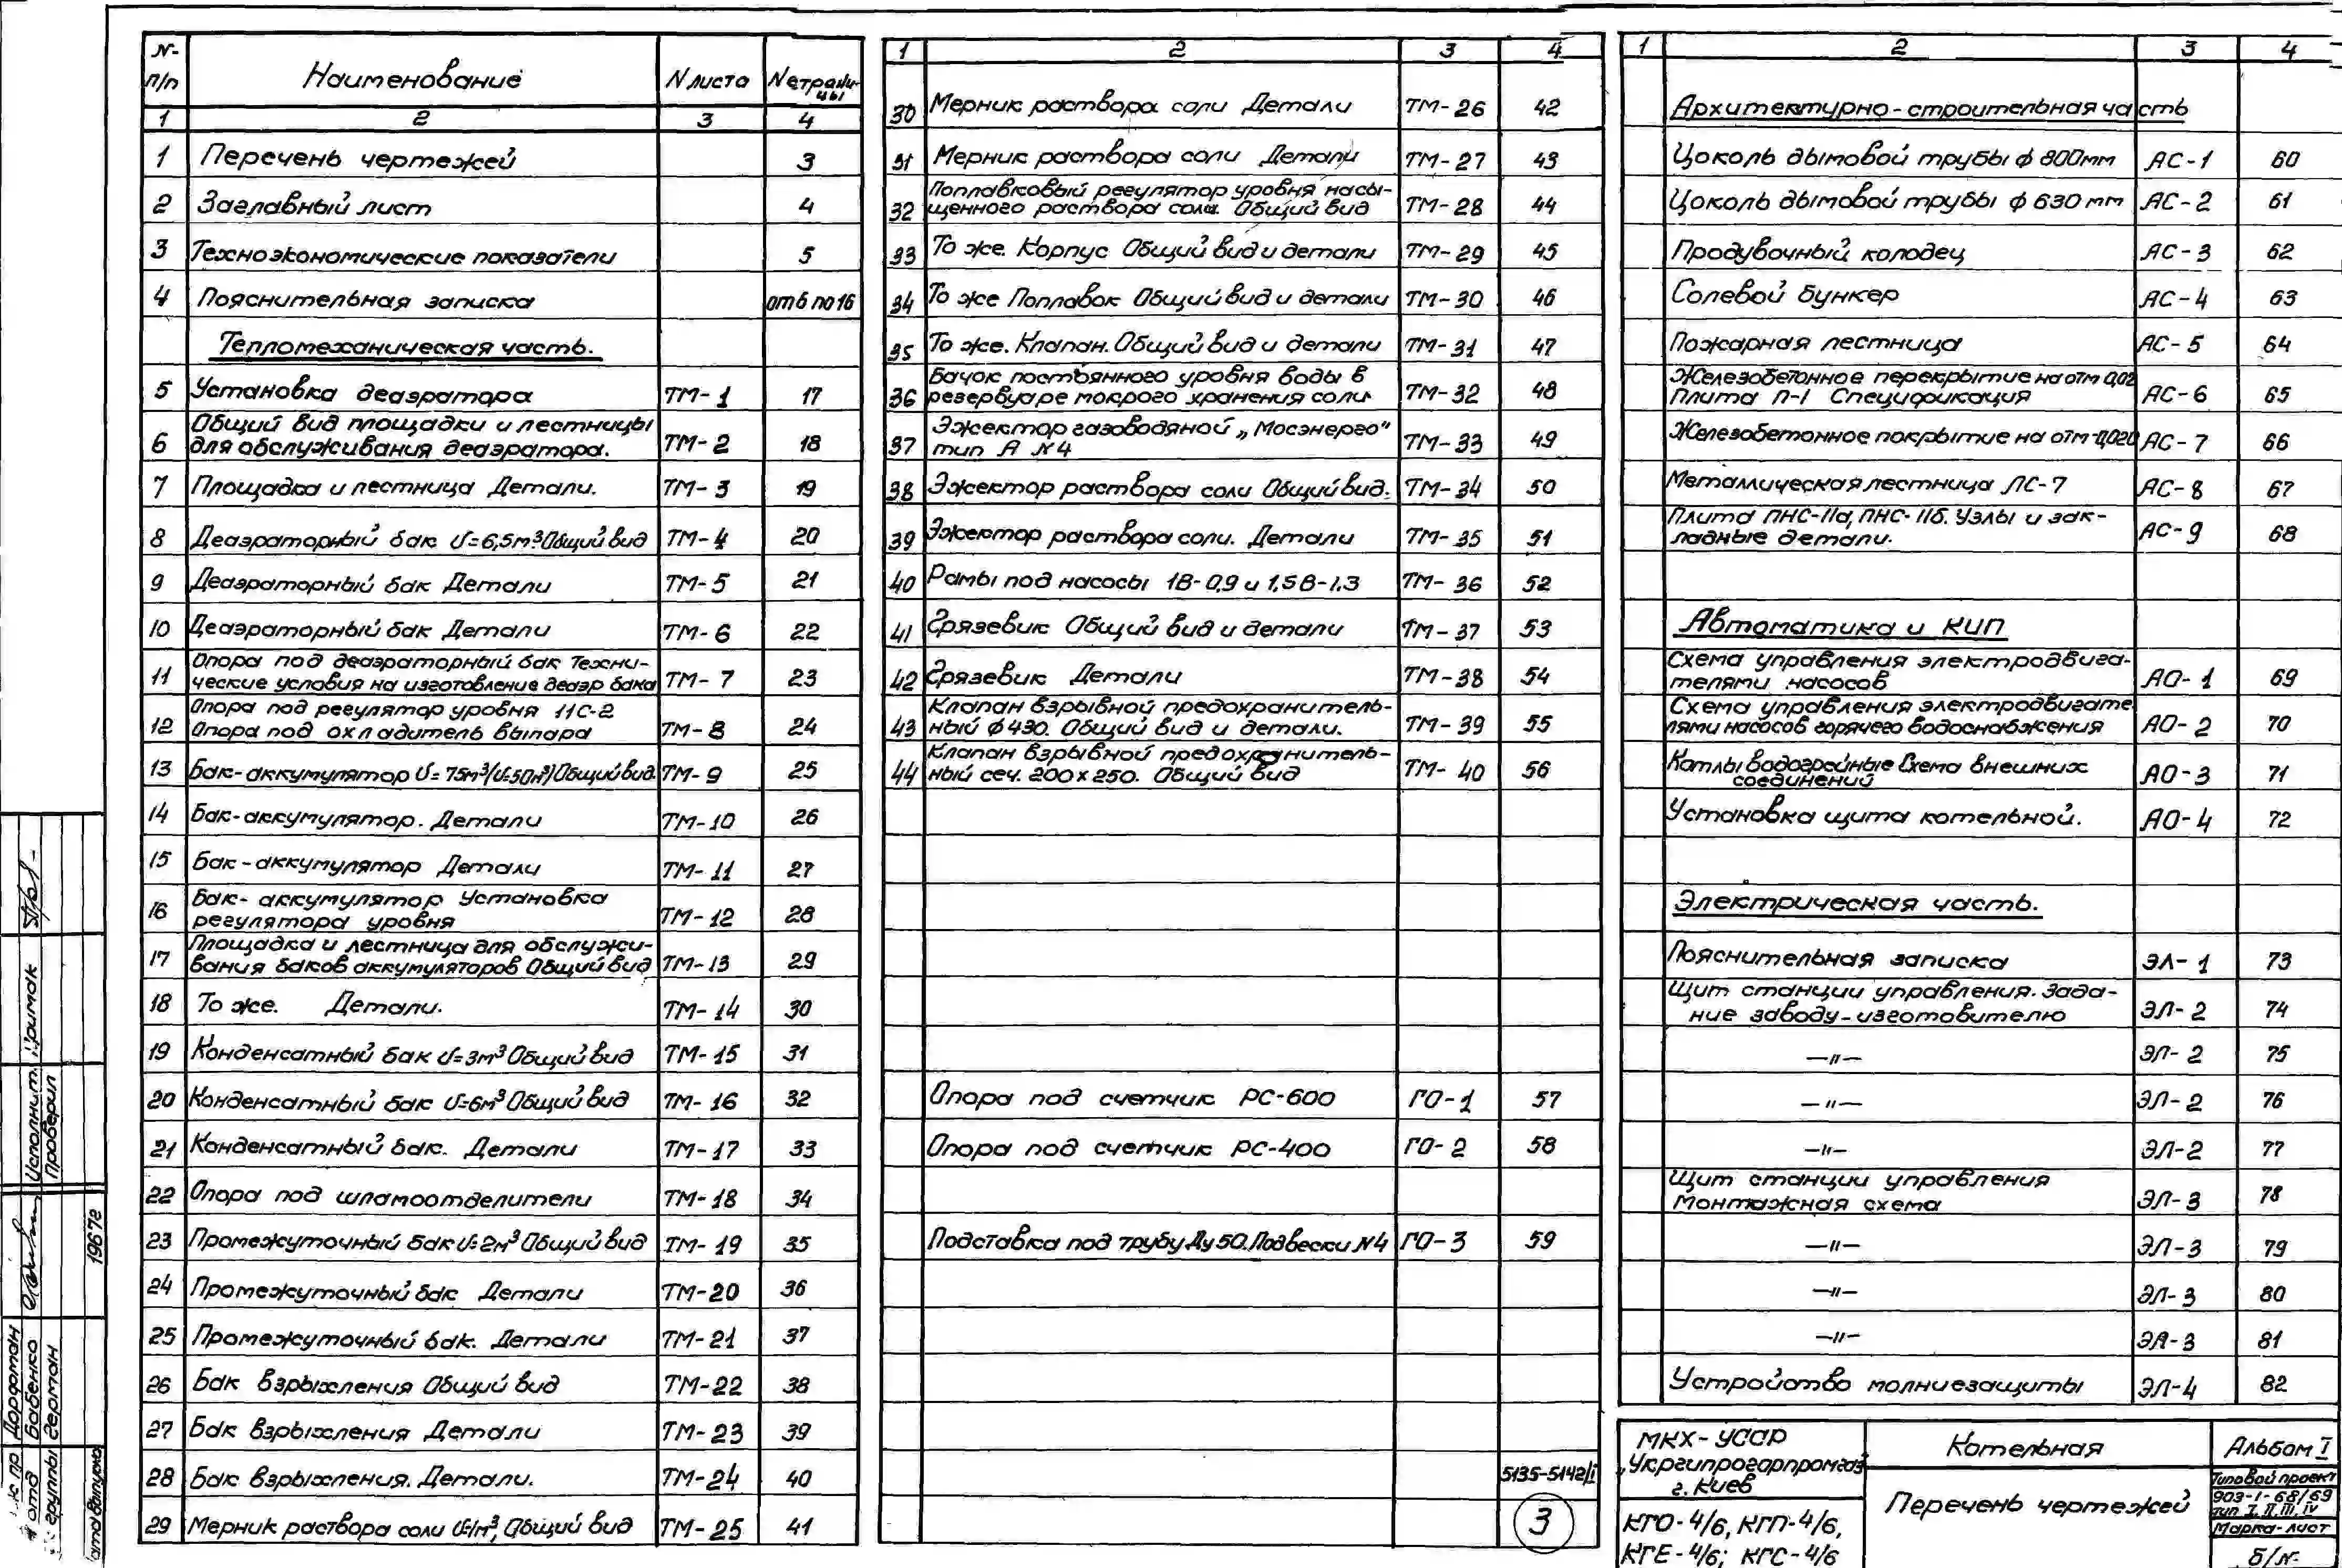 N- п/п Наименование N листа N страницы
1 2 3 4
1 Перечень чертежей 3
2 Заглавный лист 4
3 Техноэкономические показатели 5
4 Пояснительная записка от 6 по 16
Тепломеханическая часть.
5 Установка деаэратора ТМ-1 17
Общий вид площадки и лестницы
6 для обслуживания деаэратора. ТМ-2 18
7 Площадка и лестница Детали. ТМ-3 19
8 Деаэраторный бак V=6,5м³ Общий вид ТМ-4 20
9 Деаэраторный бак Детали ТМ-5 21
10 Деаэраторный бак Детали ТМ-6 22
Опора под деаэраторный бак Техни-
11 ческие условия на изготовление деаэр бака ТМ-7 23
Опора под регулятор уровня 11С-2
12 Опора под охладитель выпара ТМ-8 24
13 Бак-аккумулятор V=75м³/V=50м³/Общий вид. ТМ-9 25
14 Бак-аккумулятор. Детали ТМ-10 26
15 Бак-аккумулятор Детали ТМ-11 27
Бак-аккумулятор Установка
16 регулятора уровня ТМ-12 28
Площадка и лестница для обслужи-
17 вания баков аккумуляторов Общий вид ТМ-13 29
18 То же. Детали. ТМ-14 30
19 Конденсатный бак V=3м³ Общий вид ТМ-15 31
20 Конденсатный бак V=6м³ Общий вид ТМ-16 32
21 Конденсатный бак. Детали ТМ-17 33
22 Опора под шламоотделители ТМ-18 34
23 Промежуточный бак V=2м³ Общий вид ТМ-19 35
24 Промежуточный бак Детали ТМ-20 36
25 Промежуточный бак. Детали ТМ-21 37
26 Бак взрыхления Общий вид ТМ-22 38
27 Бак взрыхления Детали ТМ-23 39
28 Бак взрыхления. Детали. ТМ-24 40
29 Мерник раствора соли V=1м³, Общий вид ТМ-25 41
1 2 3 4
30 Мерник раствора соли Детали ТМ-26 42
31 Мерник раствора соли Детали ТМ-27 43
Поплавковый регулятор уровня насы-
32 щенного раствора соли. Общий вид ТМ-28 44
33 То же. Корпус Общий вид и детали ТМ-29 45
34 То же Поплавок Общий вид и детали ТМ-30 46
35 То же. Клапан. Общий вид и детали ТМ-31 47
Бачок постоянного уровня воды в
36 резервуаре мокрого хранения соли ТМ-32 48
Эжектор газоводяной „Мосэнерго"
37 тип А N4 ТМ-33 49
38 Эжектор раствора соли Общий вид. ТМ-34 50
39 Эжектор раствора соли. Детали ТМ-35 51
40 Рамы под насосы 1В-0,9 и 1,5В-1,3 ТМ-36 52
41 Грязевик Общий вид и детали ТМ-37 53
42 Грязевик Детали ТМ-38 54
Клапан взрывной предохранитель-
43 ный ф 430. Общий вид и детали. ТМ-39 55
Клапан взрывной предохранитель-
44 ный сеч. 200х250. Общий вид ТМ-40 56
Опора под счетчик РС-600 ГО-1 57
Опора под счетчик РС-400 ГО-2 58
Подставка под трубу Ду 50. Подвески N4 ГО-3 59
5135-5142/I
3
1 2 3 4
Архитектурно-строительная часть
Цоколь дымовой трубы ф 800мм АС-1 60
Цоколь дымовой трубы ф 630мм АС-2 61
Продувочный колодец АС-3 62
Солевой бункер АС-4 63
Пожарная лестница АС-5 64
Железобетонное перекрытие на отм 0,02
Плита П-1 Спецификация АС-6 65
Железобетонное покрытие на отм-0,020 АС-7 66
Металлическая лестница ЛС-7 АС-8 67
Плита ПНС-11а, ПНС-11б. Узлы и зак-
ладные детали. АС-9 68
Автоматика и КИП
Схема управления электродвига-
телями насосов АО-1 69
Схема управления электродвигате
лями насосов горячего водоснабжения АО-2 70
Котлы водогрейные Схема внешних
соединений АО-3 71
Установка щита котельной. АО-4 72
Электрическая часть.
Пояснительная записка ЭЛ-1 73
Щит станции управления. Зада-
ние заводу-изготовителю ЭЛ-2 74
—"— ЭЛ-2 75
—"— ЭЛ-2 76
—"— ЭЛ-2 77
Щит станции управления
Монтажная схема ЭЛ-3 78
—"— ЭЛ-3 79
—"— ЭЛ-3 80
—"— ЭЛ-3 81
Устройство молниезащиты ЭЛ-4 82
МКХ-УССР
„Укргипрогорпромгаз"
г. Киев
КГО-4/6, КГП-4/6,
КГЕ-4/6; КГС-4/6
Котельная
Перечень чертежей
Альбом I
Типовой проект
903-1-68/69
тип I, II, III, IV
Марка-лист
б/н.
Исполнит. Примак
Проверил
1967г
Дорфман
отд Бабенко
группы Герман